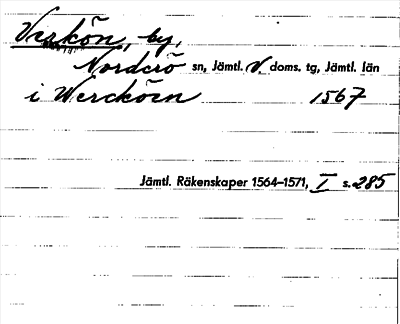 Verkön, by,
Norderö sn, Jämtl. V. doms. tg, Jämtl. län
i Wercköen 1567
Jämtl. Räkenskaper 1564–1571, I s. 285